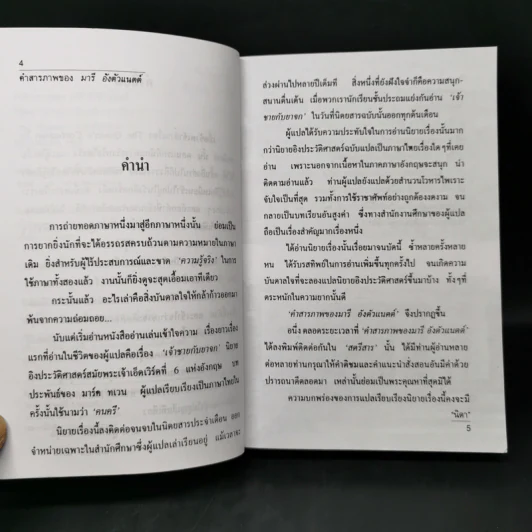 4
คำสารภาพของ มารี อังตัวแนตต์
คำนำ
การถ่ายทอดภาษาหนึ่งมาสู่อีกภาษาหนึ่งนั้น ย่อมเป็น
การยากยิ่งนักที่จะได้อรรถรสครบถ้วนตามความหมายในภาษา
เดิม ยิ่งสำหรับผู้ไร้ประสบการณ์และขาด 'ความรู้จริง' ในการ
ใช้ภาษาทั้งสองแล้ว งานนั้นก็ยิ่งดูจะสุดเอื้อมเอาทีเดียว
กระนั้นแล้ว อะไรเล่าคือสิ่งบันดาลใจให้กล้าก้าวออกมา
พ้นจากความถ่อมถอย...
นับแต่เริ่มอ่านหนังสืออ่านเล่นเข้าใจความ เรื่องยาวเรื่อง
แรกที่อ่านในชีวิตของผู้แปลคือเรื่อง 'เจ้าชายกับยาจก' นิยาย
อิงประวัติศาสตร์สมัยพระเจ้าเอ็ดเวิร์ดที่ 6 แห่งอังกฤษ บท
ประพันธ์ของ มาร์ค ทเวน ผู้แปลเรียบเรียงเป็นภาษาไทยใน
ครั้งนั้นใช้นามว่า
นิยายเรื่องนี้ลงติดต่อจนจบในนิตยสารประจำเดือน ออก
จำหน่ายเฉพาะในสำนักศึกษาซึ่งผู้แปลเล่าเรียนอยู่ แม้เวลาจะ
ล่วงผ่านไปหลายปีเต็มที สิ่งหนึ่งที่ยังฝังใจจำก็คือความสนุก-
สนานตื่นเต้น เมื่อพวกเรานักเรียนชั้นประถมแย่งกันอ่าน 'เจ้า
ชายกับยาจก' ในวันที่นิตยสารฉบับนั้นออกทุกต้นเดือน
ผู้แปลได้รับความประทับใจในการอ่านนิยายเรื่องนั้นมาก
กว่านิยายอิงประวัติศาสตร์ฉบับแปลเป็นภาษาไทยเรื่องใด ๆ ที่เคย
อ่าน เพราะนอกจากเนื้อหาในภาคภาษาอังกฤษจะสนุก น่า
ติดตามอ่านแล้ว ท่านผู้แปลยังแปลด้วยสำนวนโวหารไพเราะ
จับใจเป็นที่สุด รวมทั้งการใช้ราชาศัพท์อย่างถูกต้องงดงาม จน
กลายเป็นบทเรียนอันสูงค่า ซึ่งทางสำนักงานศึกษาของผู้แปล
ถือเป็นเรื่องสำคัญมากเรื่องหนึ่ง
ได้อ่านนิยายเรื่องนั้นเรื่อยมาจนบัดนี้ ซ้ำหลายครั้งหลาย
หน ได้รับรสทิพย์ในการอ่านเพิ่มขึ้นทุกครั้งไป จนเกิดความ
บันดาลใจที่จะลองแปลนิยายอิงประวัติศาสตร์ขึ้นมาบ้าง ทั้งๆที่
ตระหนักในความยากนั้นดี
'คำสารภาพของมารี อังตัวแนตต์' จึงปรากฏขึ้น
อนึ่ง ตลอดระยะเวลาที่ 'คำสารภาพของมารี อังตัวแนตต์'
ได้ลงพิมพ์ติดต่อกันใน 'สตรีสาร' นั้น ได้มีท่านผู้อ่านหลาย
ต่อหลายท่านกรุณาให้คำติชมและคำแนะนำสั่งสอนอันมีค่าด้วย
ปรารถนาดีตลอดมา เหล่านั้นย่อมเป็นพระคุณหาที่สุดมิได้
ความบกพร่องของการแปลเรียบเรียงนิยายเรื่องนี้คงจะมี
"นิดา"
5